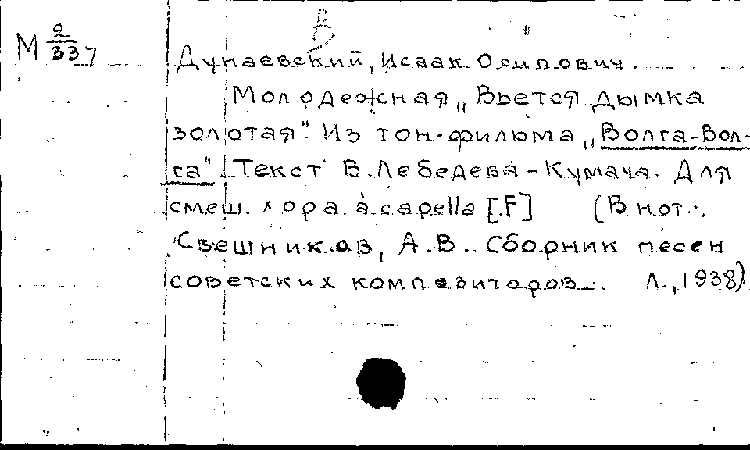 В
М 2/337
Дунаевский, Исаак Осипович.
Молодежная „Вьется дымка
золотая". Из тон-фильма „Волга-Вол-
га". Текст В. Лебедева-Кумача. Для
смеш. хора a capella [F] (В нот.:
Свешников, А.В. Сборник песен
советских композиторов. Л., 1938)